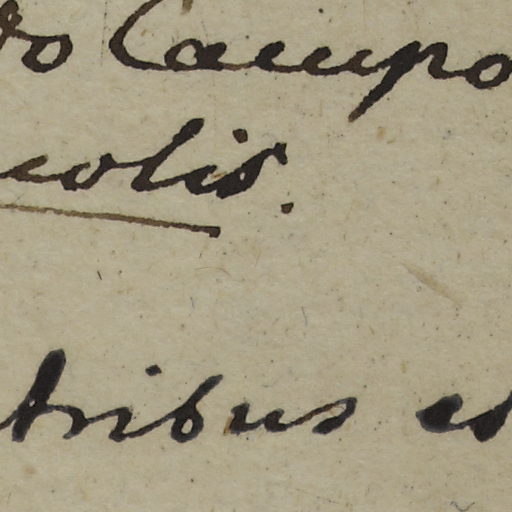 do Campo
colis.
tribus es